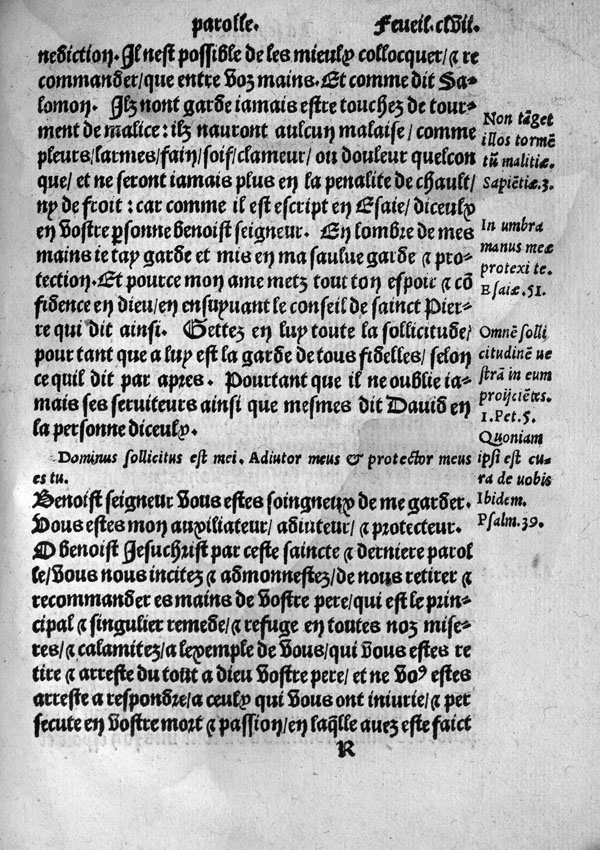 parolle. Feueil. clvii.
nediction. Il nest possible de les mieulx collocquer/ ⁊ re
commander/ que entre voz mains. Et comme dit Sa-
lomon. Ilz nont garde iamais estre touchez de tour-
ment de malice: ilz nauront aulcun malaise/ comme
pleurs/ larmes/ fain/ soif/ clameur/ ou douleur quelcon
que/ et ne seront iamais plus en la penalite de chault/
ny de froit: car comme il est escript en Esaie/ diceulx
en vostre p̱sonne benoist seigneur. En lombre de mes
mains ie tay garde et mis en ma saulue garde ⁊ pro-
tection. Et pource mon ame metz tout ton espoir ⁊ cõ
fidence en dieu/ en ensuyuant le conseil de sainct Pier-
re qui dit ainsi. Gettez en luy toute la sollicitude/
pour tant que a luy est la garde de tous fidelles/ selon
ce quil dit par apres. Pourtant que il ne oublie ia-
mais ses seruiteurs ainsi que mesmes dit Dauid en
la personne diceulx.
Dominus sollicitus est mei. Adiutor meus & protector meus
es tu.
Benoist seigneur vous estes soingneux de me garder.
Vous estes mon auxiliateur/ adiuteur/ ⁊ protecteur.
O benoist Jesuchrist par ceste saincte ⁊ derniere parol
le/ vous nous incitez ⁊ admonnestez/ de nous retirer ⁊
recommander es mains de vostre pere/ qui est le prin-
cipal ⁊ singulier remede/ ⁊ refuge en toutes noz mise-
res/ ⁊ calamitez/ a lexemple de vous/ qui vous estes re
tire ⁊ arreste du tout a dieu vostre pere/ et ne voꝰ estes
arreste a respondre/ a ceulx qui vous ont iniurie/ ⁊ per
secute en vostre mort ⁊ passion/ en laq̃lle auez este faict
R
Non tãget
illos tormẽ
tũ malitiæ.
Sapiẽtiæ. 3.
In umbra
manus meæ
protexi te.
Esaiæ. 51.
Omnẽ solli
citudinẽ ue
strã in eum
proijciẽtes.
1. Pet. 5.
Quoniam
ipsi est cu-
ra de uobis
Ibidem.
Psalm. 39.